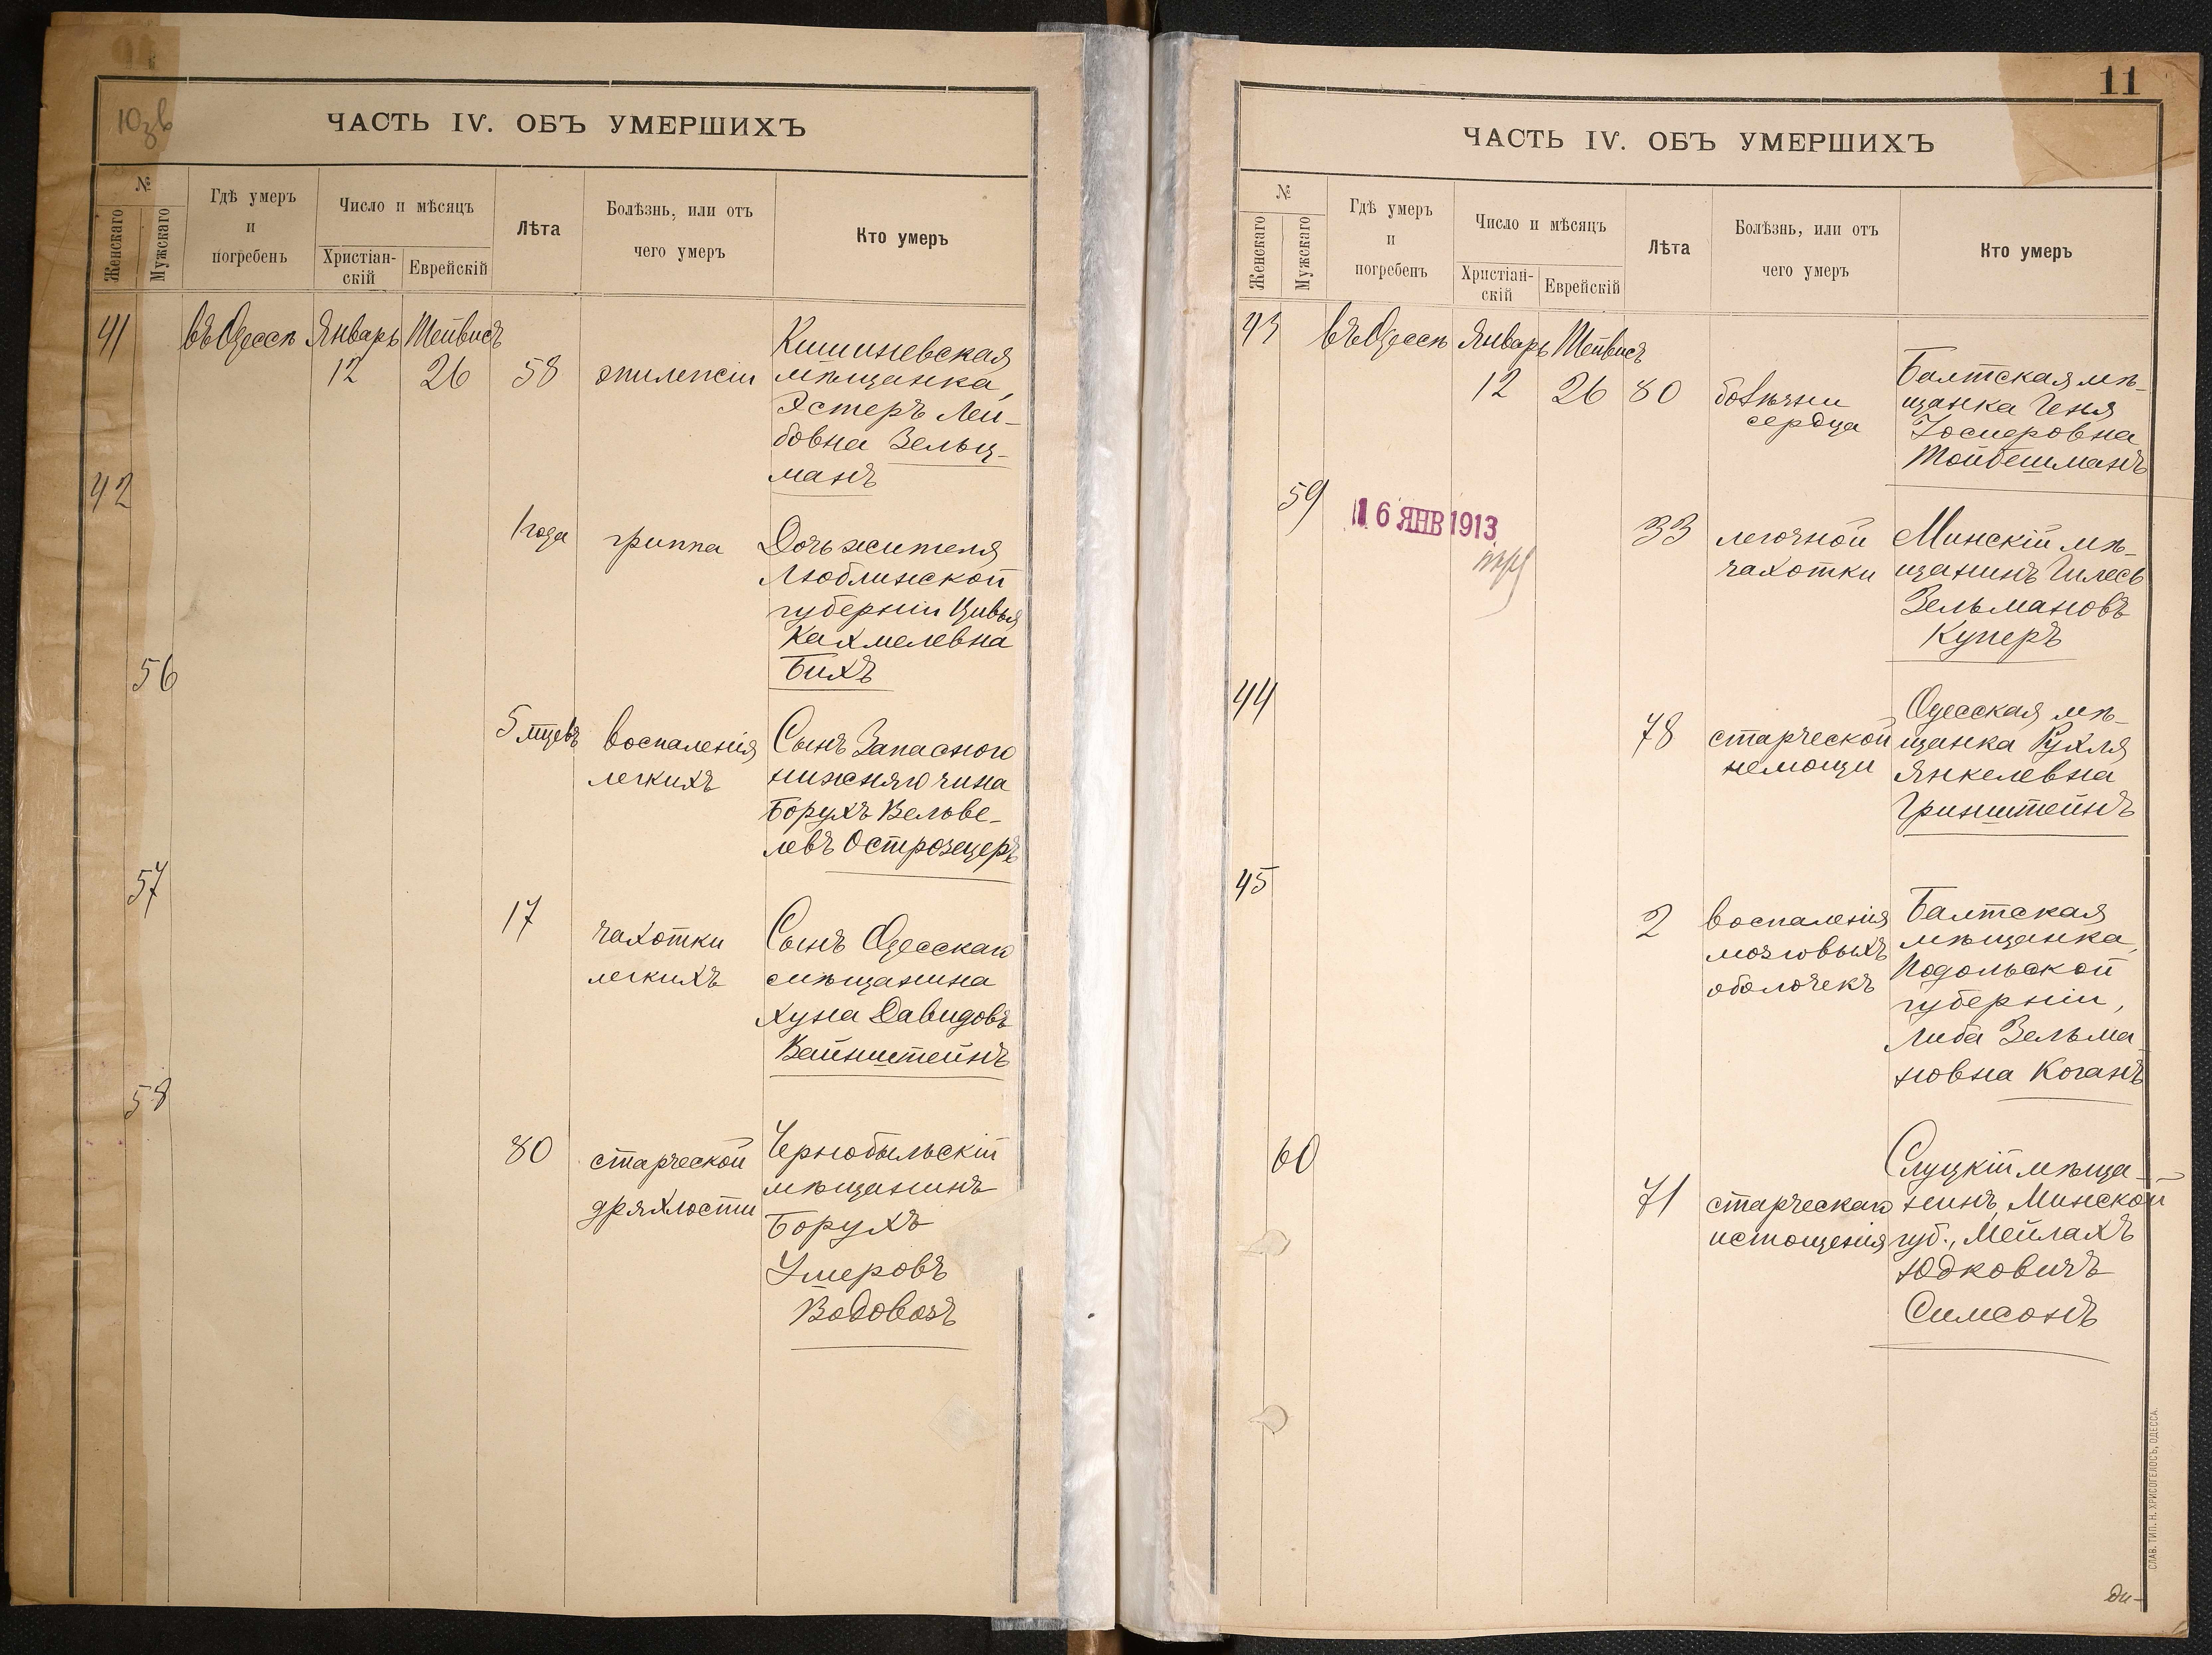 10зв
ЧАСТЬ IV. ОБЪ УМЕРШИХЪ
№
Женскаго
Мужскаго
Гдѣ умеръ
и
погребенъ
Число и мѣсяцъ
Христіан-
скій
Еврейскій
Лѣта
Болѣзнь, или отъ
чего умеръ
Кто умеръ
41
въ Одессѣ Январь Тейвисъ
12 26 58 эпилепсіи
Кишиневская
мѣщанка,
Эстеръ Лей-
бовна Зельц-
манъ
42
1 года гриппа
Дочь жителя
Люблинской
губерніи Цивья
Кахмелевна
Бихъ
56
5 мцевъ воспаленія
легкихъ
Сынъ Запасного
нижняго чина
Борухъ Вельве-
левъ Острозецеръ
57
17 чахотки
легкихъ
Сынъ Одесскаго
мѣщанина
Хуна Давидовъ
Вайнштейнъ
58
80 старческой
дряхлости
Чернобыльскій
мѣщанинъ
Борухъ
Умеровъ
Водовозъ
11
ЧАСТЬ IV. ОБЪ УМЕРШИХЪ
№
Женскаго
Мужскаго
Гдѣ умеръ
и
погребенъ
Число и мѣсяцъ
Христіан-
скій
Еврейскій
Лѣта
Болѣзнь, или отъ
чего умеръ
Кто умеръ
43
въ Одессѣ Январь Тейвисъ
12 26 80 болѣзни
сердца
Балтская мѣ-
щанка Геня
Іосиеровна
Тойбешманъ
59
16 ЯНВ 1913
33 легочной
чахотки
Минскій мѣ-
щанинъ Гилесь
Зельмановъ
Куперъ
44
78 старческой
немощи
Одесская мѣ-
щанка Рухля
Янкелевна
Гринштейнъ
45
2 воспаленія
мозговыхъ
оболочекъ
Балтская
мѣщанка,
Подольской
губерніи,
Либа Зельма-
новна Коганъ
60
71 старческаго
истощенія
Слуцкій мѣща-
нинъ, Минской
губ., Мейлахъ
Юдковичъ
Симсонъ
СЛАВ. ТИП. Н. ХРИСОГЕЛОСЪ, ОДЕССА.